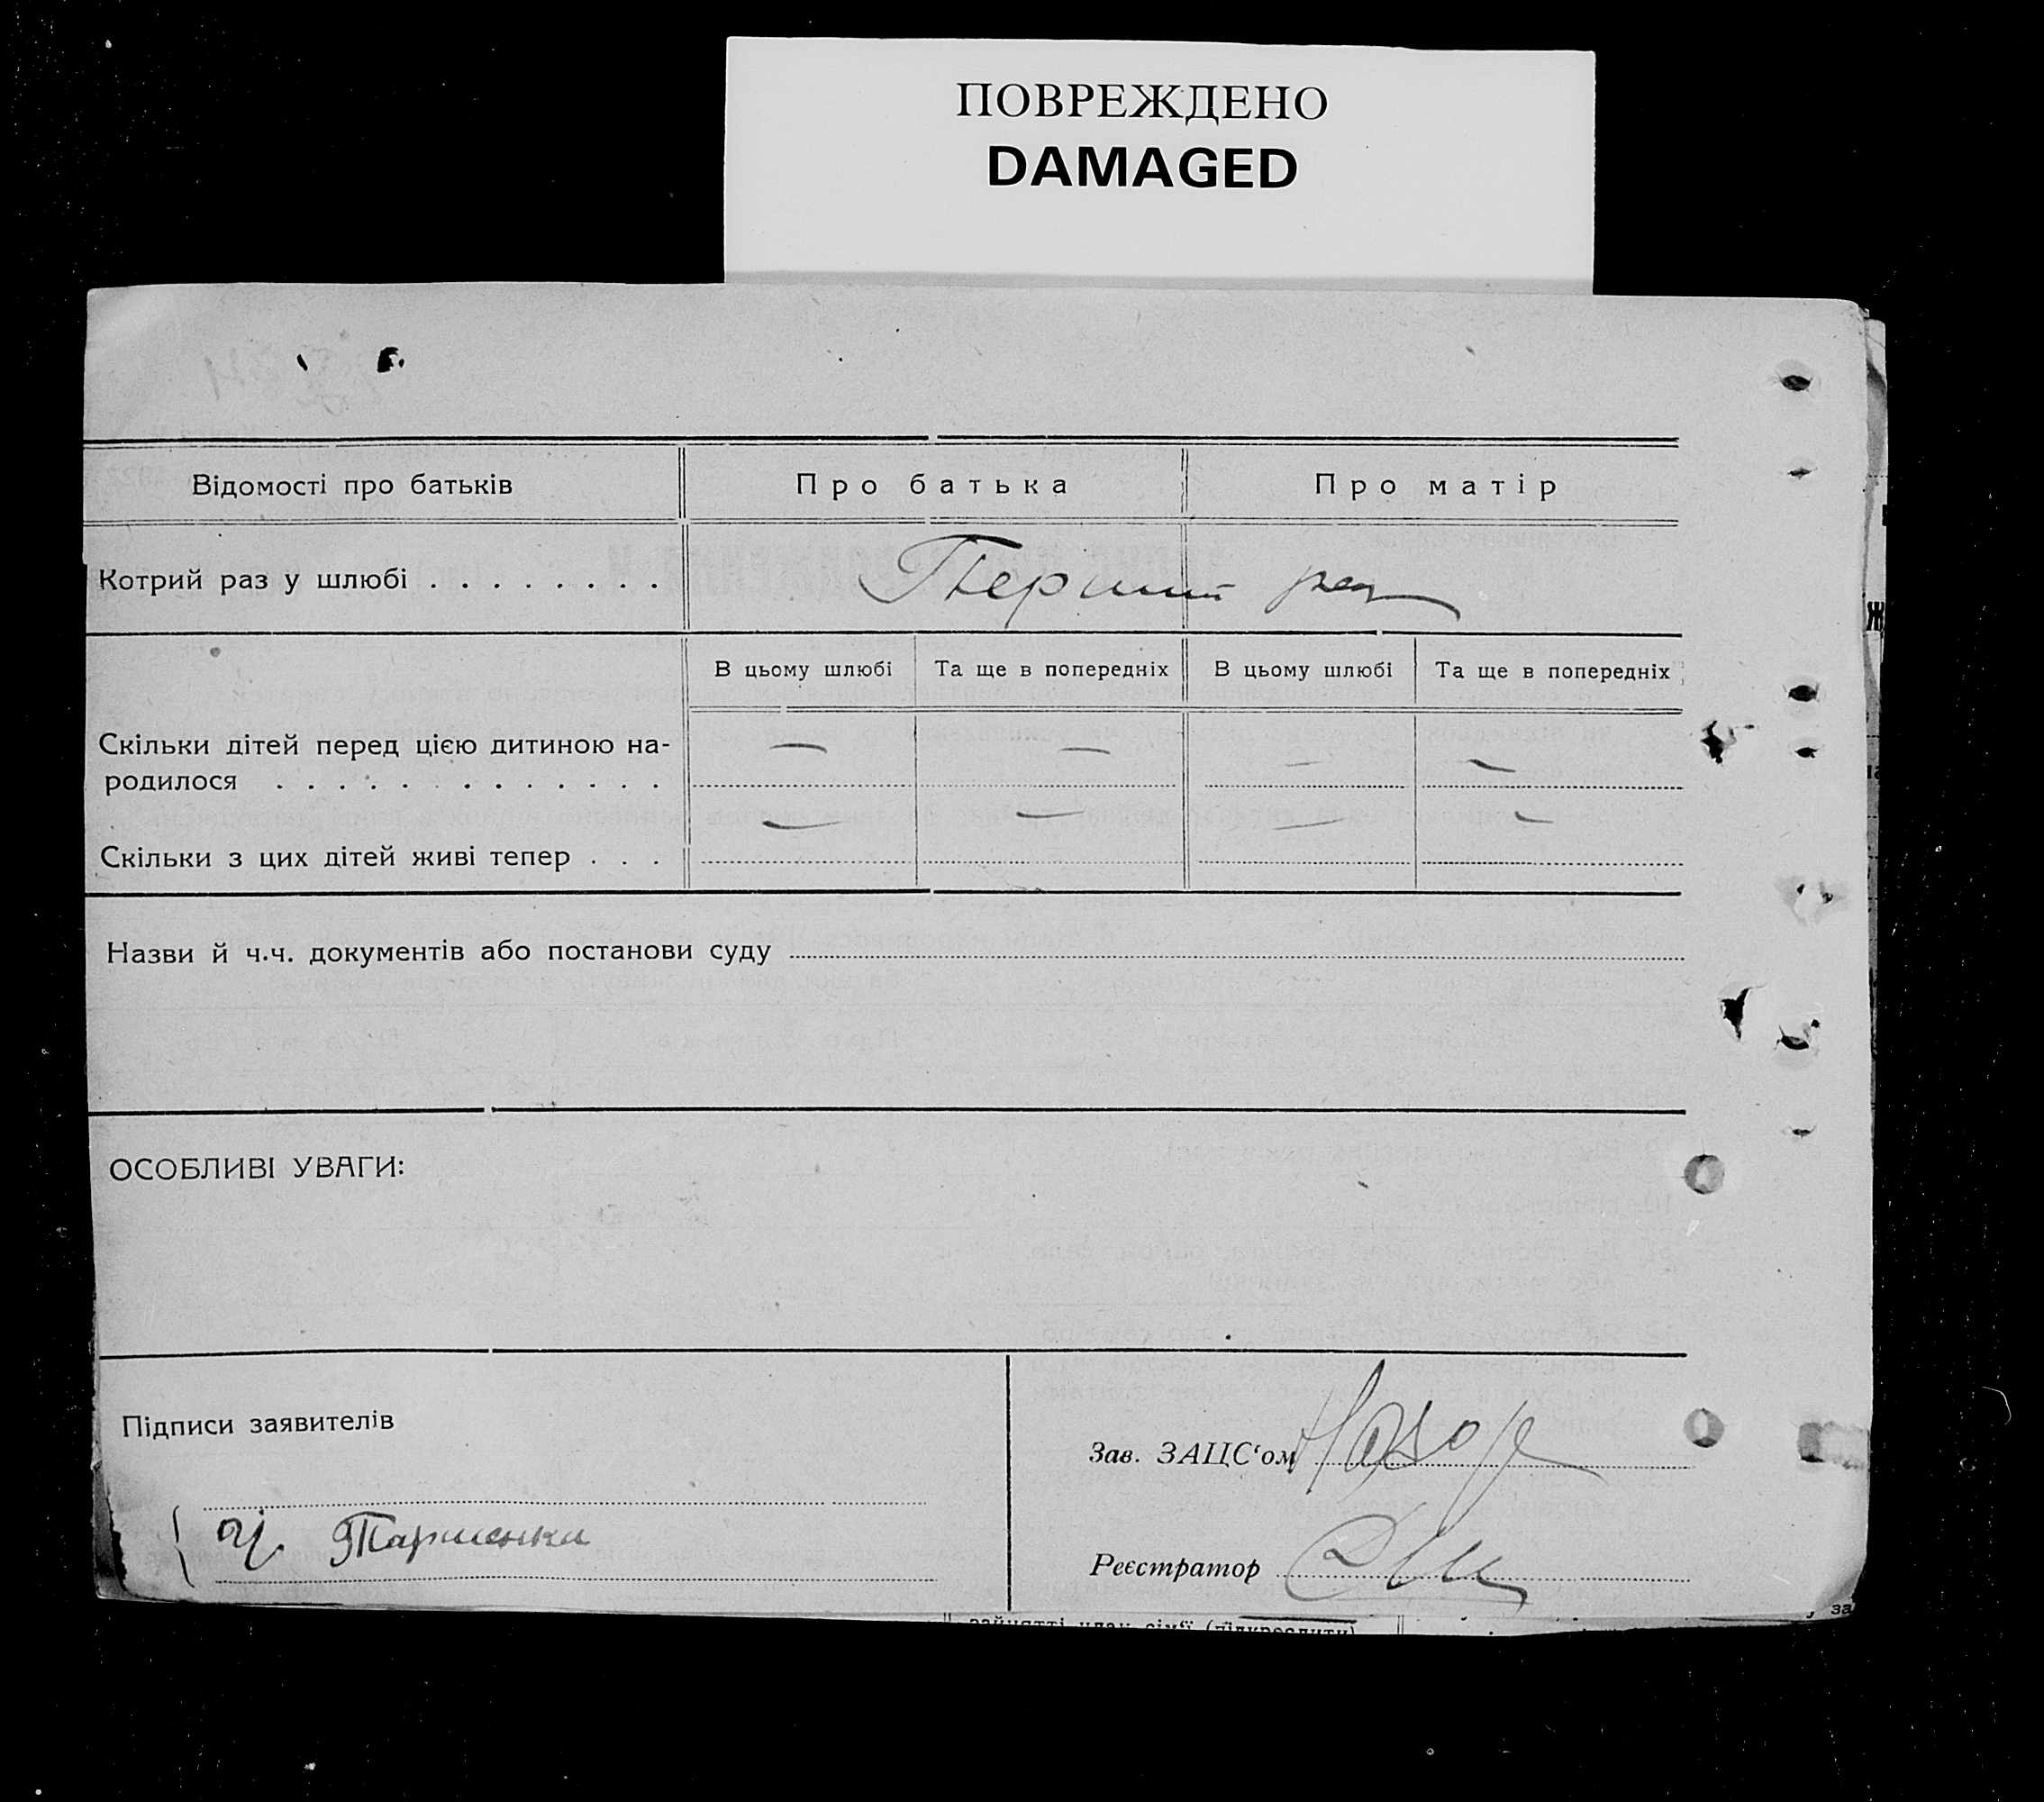 ПОВРЕЖДЕНО
DAMAGED
Відомості про батьків
Про батька
Про матір
Котрий раз у шлюбі . . . . . . . .
Перший раз
В цьому шлюбі
Та ще в попередніх
В цьому шлюбі
Та ще в попередніх
Скільки дітей перед цією дитиною на-
родилося . . . . . . . . . . . . .
— — — —
Скільки з цих дітей живі тепер . . .
— — — —
Назви й ч.ч. документів або постанови суду
ОСОБЛИВІ УВАГИ:
Підписи заявителів
Зав. ЗАЦС‘ом
Реєстратор
зайнятті член сім‘ї (підкреслити)